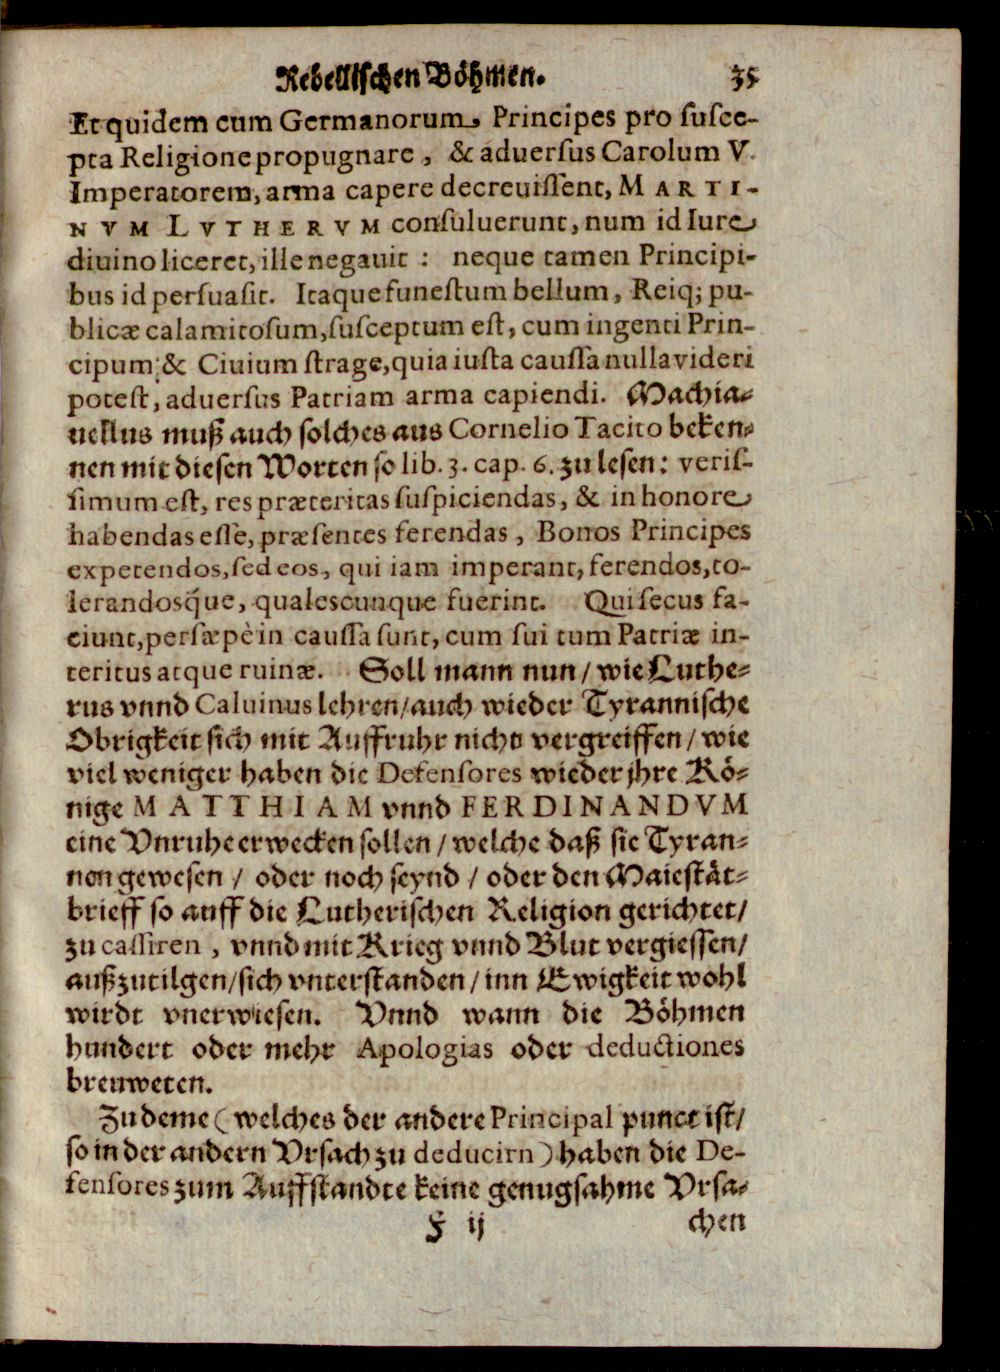 Rebellischen Böhmen. 35
Et quidem cum Germanorum Principes pro ſuſce-
pta Religione propugnare, & aduerſus Carolum V.
Imperatorem, arma capere decreuiſſent, MARTI-
NVM LVTHERVM conſuluerunt, num id Iure
diuino liceret, ille negauit : neque tamen Principi-
bus id perſuaſit. Itaque funeſtum bellum, Reiq; pu-
blicæ calamitoſum, ſuſceptum eſt, cum ingenti Prin-
cipum & Ciuium ſtrage, quia iuſta cauſſa nulla videri
poteſt, aduerſus Patriam arma capiendi. Machia-
uellus muß auch ſolches aus Cornelio Tacito beken-
nen mit dieſen Worten ſo lib. 3. cap. 6. zu leſen: veriſ-
ſimum eſt, res præteritas ſuſpiciendas, & in honore
habendas eſſe, præſentes ferendas, Bonos Principes
expetendos, ſed eos, qui iam imperant, ferendos, to-
lerandosq́ue, qualescunque fuerint. Qui ſecus fa-
ciunt, perſæpè in cauſſa ſunt, cum ſui tum Patriæ in-
teritus atque ruinæ. Soll mann nun / wie Luthe-
rus vnnd Caluinus lehren / auch wieder Tyranniſche
Obrigkeit ſich mit Auffruhr nicht vergreiffen / wie
viel weniger haben die Defenſores wieder jhre Kö-
nige MATTHIAM vnnd FERDINANDVM
eine Vnruhe erwecken ſollen / welche daß ſie Tyran-
nen geweſen / oder noch ſeynd / oder den Maieſtät-
brieff ſo auff die Lutheriſchen Religion gerichtet /
zu caſſiren, vnnd mit Krieg vnnd Blut vergieſſen /
außzutilgen / ſich vnterſtanden / inn Ewigkeit wohl
wirdt vnerwieſen. Vnnd wann die Böhmen
hundert oder mehr Apologias oder deductiones
breuweten.
Zu deme (welches der andere Principal punct iſt /
ſo in der andern Vrſach zu deducirn) haben die De-
fenſores zum Auffſtandte keine genugſahme Vrſa-
F ij chen